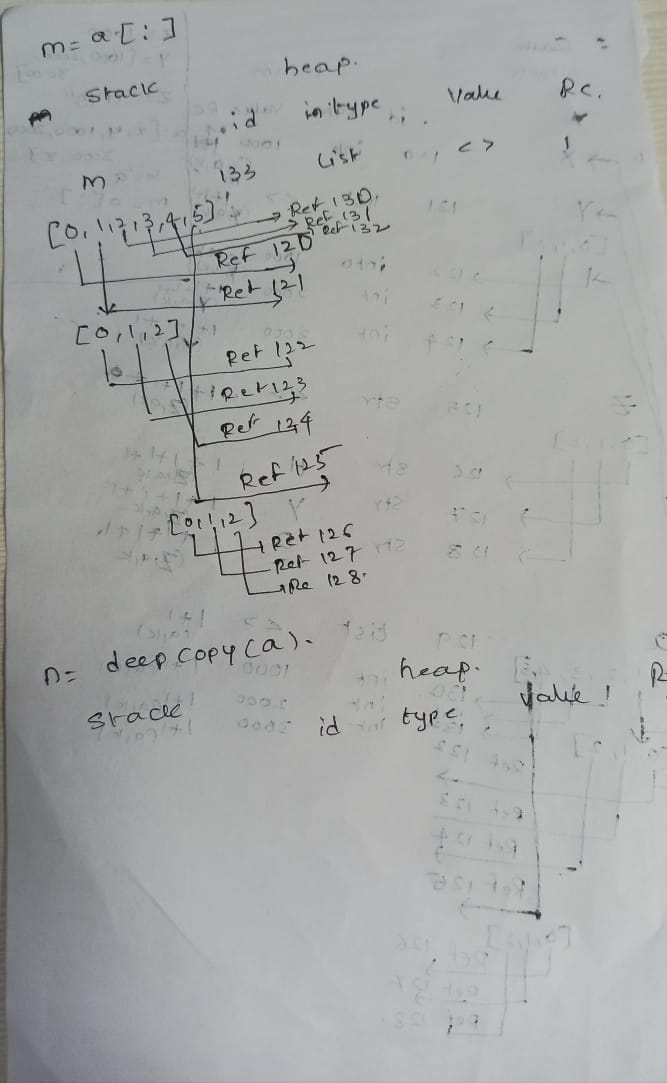 m = a[:]
heap.
stack
id type value RC.
m 133 List < > 1
[0,1,2,3,4,5]
Ref 130.
Ref 131
Ref 132
Ref 120
Ref 121
[0,1,2]
Ref 122
Ref 123
Ref 124
Ref 125
[0,1,2]
Ref 126
Ref 127
Re 128.
n = deepcopy(a).
heap.
stack id type value R